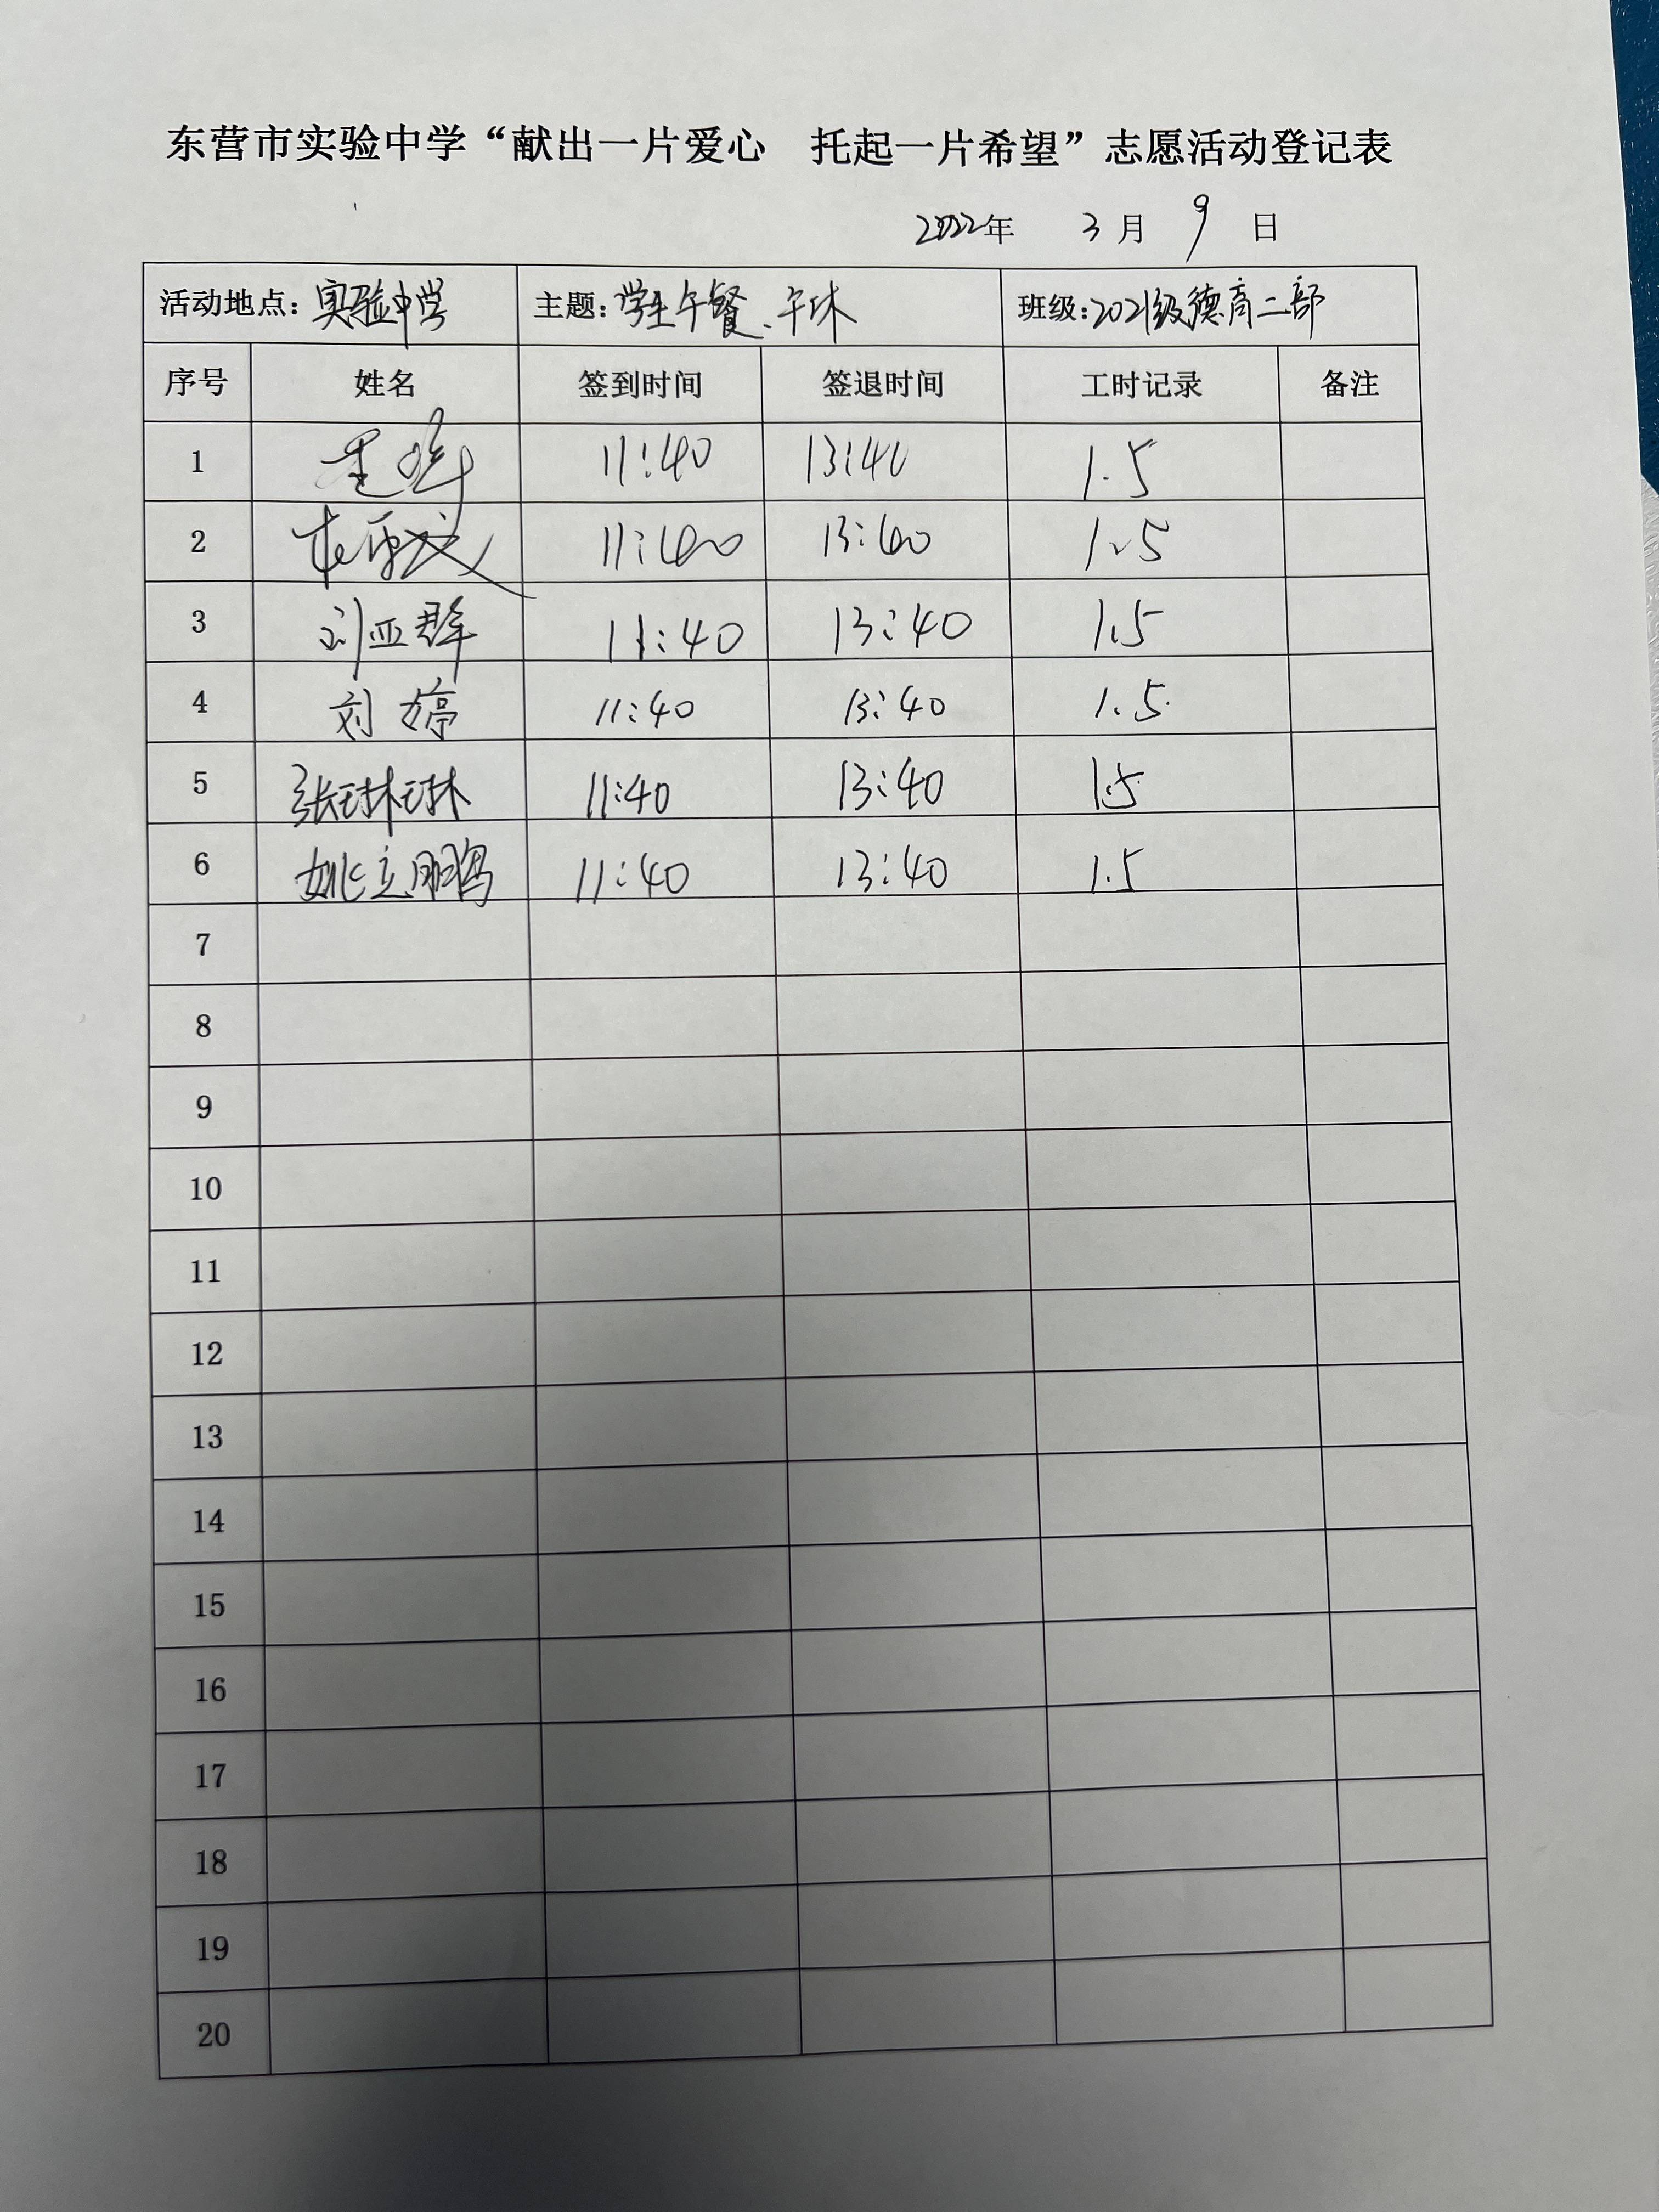 东营市实验中学“献出一片爱心 托起一片希望”志愿活动登记表
2022年 3 月 9 日
活动地点：实验中学 主题：学生午餐、午休 班级：2021级德育二部
序号 姓名 签到时间 签退时间 工时记录 备注
1 11:40 13:40 1.5
2 11:40 13:40 1.5
3 刘亚群 11:40 13:40 1.5
4 刘婷 11:40 13:40 1.5
5 张琳琳 11:40 13:40 1.5
6 姚立鹏 11:40 13:40 1.5
7
8
9
10
11
12
13
14
15
16
17
18
19
20